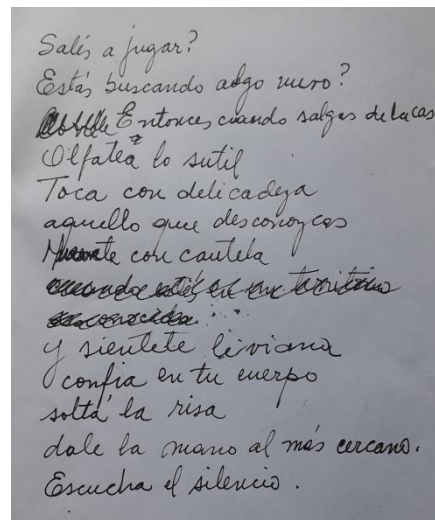 Salís a jugar?
Estás buscando algo nuevo?
Entonces cuando salgas de la cas
Olfatea lo sutil
Toca con delicadeza
aquello que desconozcas
con cautela
y sientete liviana
confia en tu cuerpo
soltá la risa
dale la mano al más cercano.
Escucha el silencio.